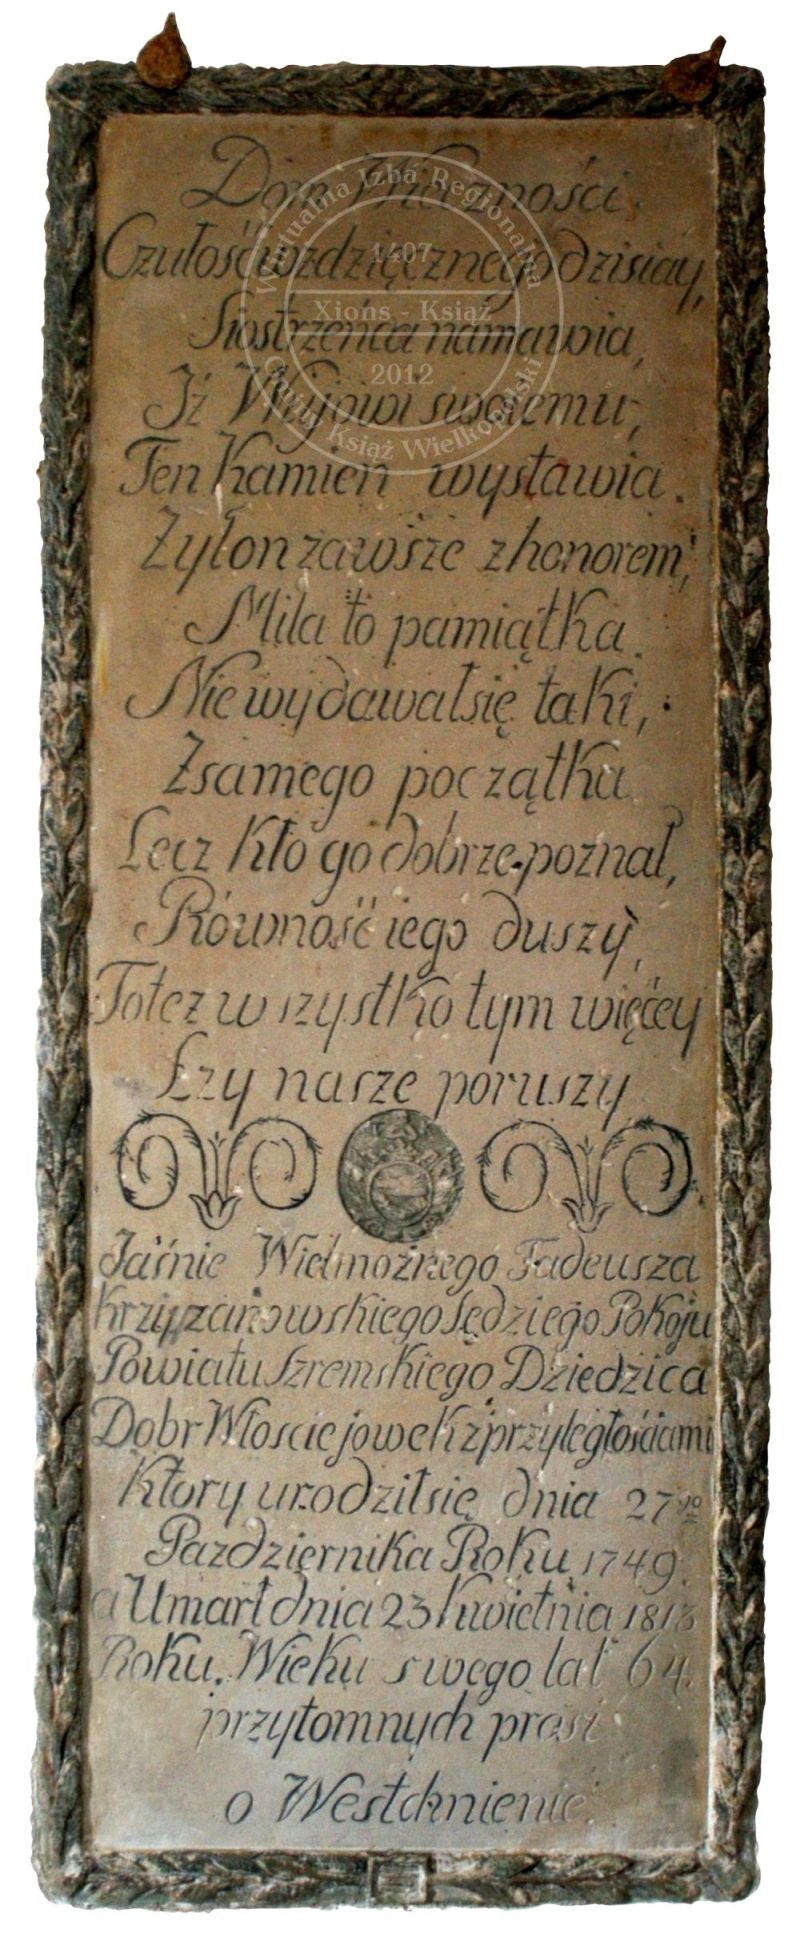 Dom Wieczności.
Czułość wzdzięcznego dzisiay,
Siostrzeńca namawia,
Iż Wujowi swoiemu,
Ten Kamień wystawia.
Żył on zawsze z honorem,
Miła to pamiątka.
Nie wydawał się taki,
Z samego początku
Lecz kto go dobrze poznał,
Równość iego duszy,
Toteż wszystko tym więcey
Łzy nasze poruszy
Jaśnie Wielmożnego Tadeusza
Krzyżanowskiego Sędziego Pokoju
Powiatu Szremskiego Dziedzica
Dobr Włosciejowek z przyległościami
Ktory urodził się dnia 27go
Pazdziernika Roku 1749.
a Umarł dnia 23 kwietnia 1813
Roku. Wieku swego lat 64.
przytomnych prosi
o Westchnienie.
Wirtualna Izba Regionalna
1407
Xions - Książ
2012
Gminy Książ Wielkopolski